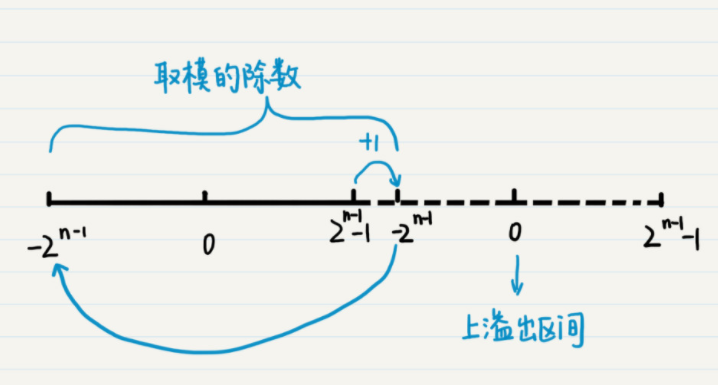 取模的除数
+1
-2^{n-1} 0 2^{n-1}-1 -2^{n-1} 0 2^{n-1}-1
上溢出区间